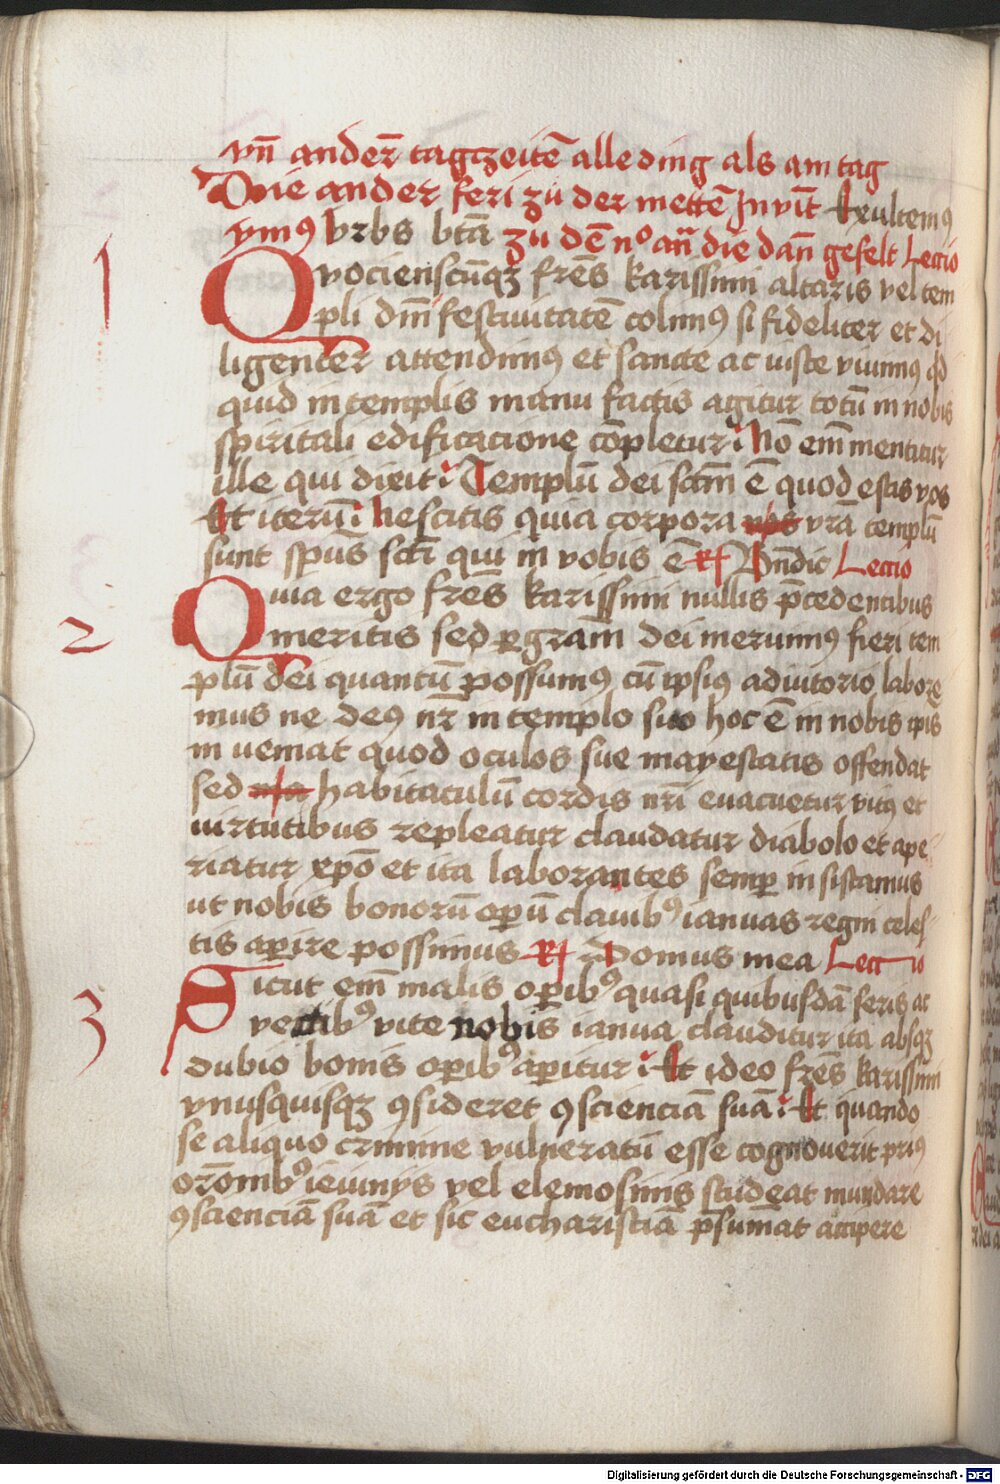 vn̄ ander̄ tagczeitē alle ding als am tag
Die ander feri zů der mettē Jnvit̄ Exultemꝰ
ymꝰ Vrbs btā zů dē nº an̄ die dan̄ gefelt Lectio
1
Qvociensc̄uqꝫ frēs karissimi altaris vel tem
pli dn̄i festiuitatē colimꝰ si fideliter et di
ligenter attendimꝰ et sancte ac iuste viuimꝰ qd̄
quid in templis manu factis agitur totū in nobis
spiritali edificacione cōpletur Nō em̄ mentitur
ille qui dixit Templū dei scm̄ ē quod estis vos
Et iterū Nescitis quia corpora vos vrā templū
sunt spūs scī qui in vobis ē R Bn̄dic Lectio
2
Qvia ergo frēs karissimi nullis p̄cedentibus
meritis sed ꝑ grām dei meruimꝰ fieri tem
plū dei quantū possumꝰ cū ipsiꝰ adiutorio labore
mus ne deꝰ nr̄ in templo suo hoc ē in nobis ipis
in ueniat quod oculos sue mayestatis offendat
sed habitaculū cordis nr̄i euacuetur vitijs et
uirtutibus repleatur claudatur diabolo et ape
riatur xpō et ita laborantes semꝑ insistamus
ut nobis bonorū oꝑū clauibꝰ ianuas regni celes
tis aꝑire possimus R Domus mea Lectio
3
Sicut em̄ malis oꝑibꝰ quasi quibusdā seris ac
vectibꝰ vite nobis ianua clauditur ita absqꝫ
dubio bonis oꝑibꝰ aꝑitur Et ideo frēs karissimi
vnusquisqꝫ ꝯsideret ꝯscienciā suā Et quando
se aliquo crimine vulneratū esse cognouerit priꝰ
orōnibꝰ ieiunijs vel elemosinis studeat mundare
ꝯscienciā suā et sic eucharistiā p̄sumat accipere
Digitalisierung gefördert durch die Deutsche Forschungsgemeinschaft - DFG